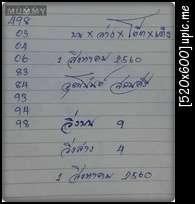 MUMMY
498
03 บน × ล่าง × โต๊ด × เต็ง
04
06 1 สิงหาคม 2560
08
84
93
94 วิ่งบน 9
98
วิ่งล่าง 4
1 สิงหาคม 2560
[520x600]upic.me